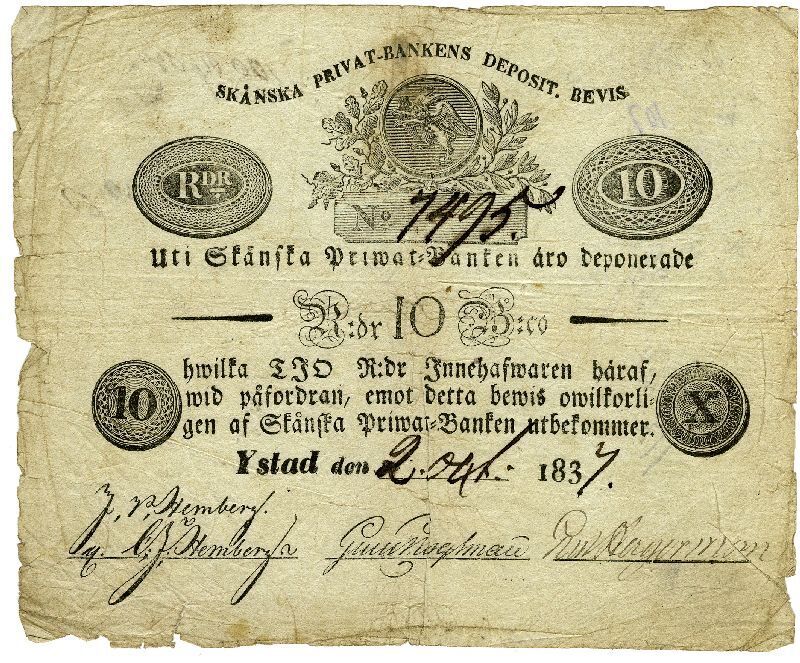 SKÅNSKA PRIVAT-BANKENS DEPOSIT. BEVIS.
RDR
10
No 7495.
Uti Skånska Priwat-Banken äro deponerade
R:dr 10 B:co
10
hwilka TIO R:dr Innehafwaren häraf,
wid påfordran, emot detta bewis owilkorli-
gen af Skånska Priwat-Banken utbekommer.
X
Ystad den 2. Oct. 1837.
Hemberg.
C. J. Hemberg
Hagerman